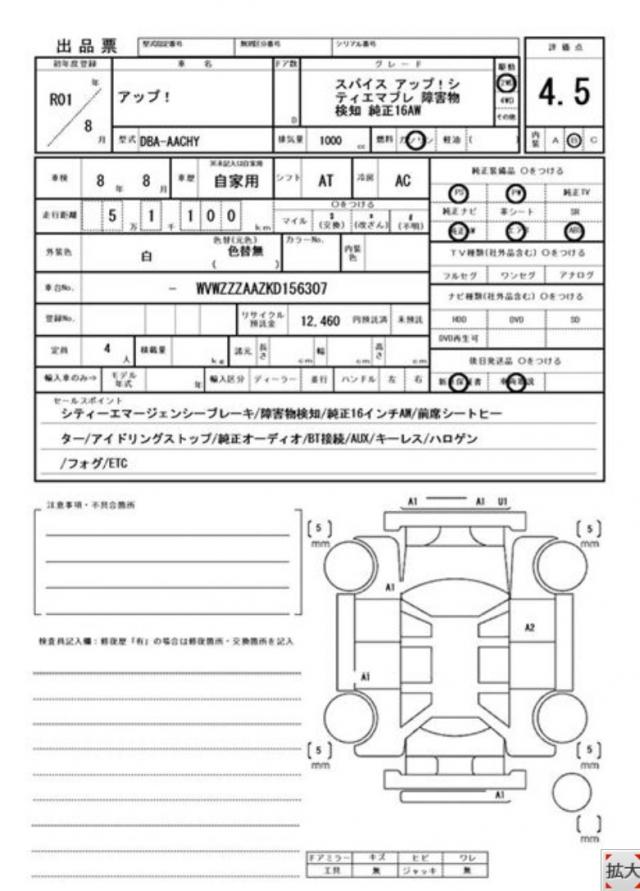 出品票 型式指定番号 類別区分番号 シリアル番号
初年度登録 車 名 ドア数 グレード 駆動 評価点
R01 年 8 月
アップ! D
スパイス アップ!シ
ティエマブレ 障害物
検知 純正16AW
2WD
4WD
その他
4.5
型式 DBA-AACHY 排気量 1000 cc 燃料 ガソリン 軽油 ( ) 内装 A B C
車検 8 年 8 月 車歴 ※未記入は自家用 自家用 シフト AT 冷房 AC
純正装備品 Oをつける
PS PW 純正TV
純正ナビ 革シート SR
純正AW エアB ABS
走行距離 5 万 1 千 1 0 0 km Oをつける マイル $ (交換) * (改ざん) # (不明)
外装色 白 色替(元色) 色替無 ( ) カラーNo. 内装色
TV種類(社外品含む) Oをつける
フルセグ ワンセグ アナログ
車台No. - WVWZZZAAZKD156307
ナビ種類(社外品含む) Oをつける
HDD DVD SD
DVD再生可
登録No. リサイクル預託金 12,460 円預託済 未預託
定員 4 人 積載量 kg 諸元 長さ cm 幅 cm 高さ cm
後日発送品 Oをつける
輸入車のみ⇒ モデル年式 年 輸入区分 ディーラー 並行 ハンドル 左 右
セールスポイント
シティーエマージェンシーブレーキ/障害物検知/純正16インチAW/前席シートヒー
ター/アイドリングストップ/純正オーディオ/BT接続/AUX/キーレス/ハロゲン
/フォグ/ETC
注意事項・不具合箇所
検査員記入欄:修復歴「有」の場合は修復箇所・交換箇所を記入
A1 A1 U1
[ 5 ] mm
[ 5 ] mm
A1
A2
A1
[ 5 ] mm
[ 5 ] mm
A1
[ ] mm
ドアミラー キズ ヒビ ワレ
工具 無 ジャッキ 無
拡大